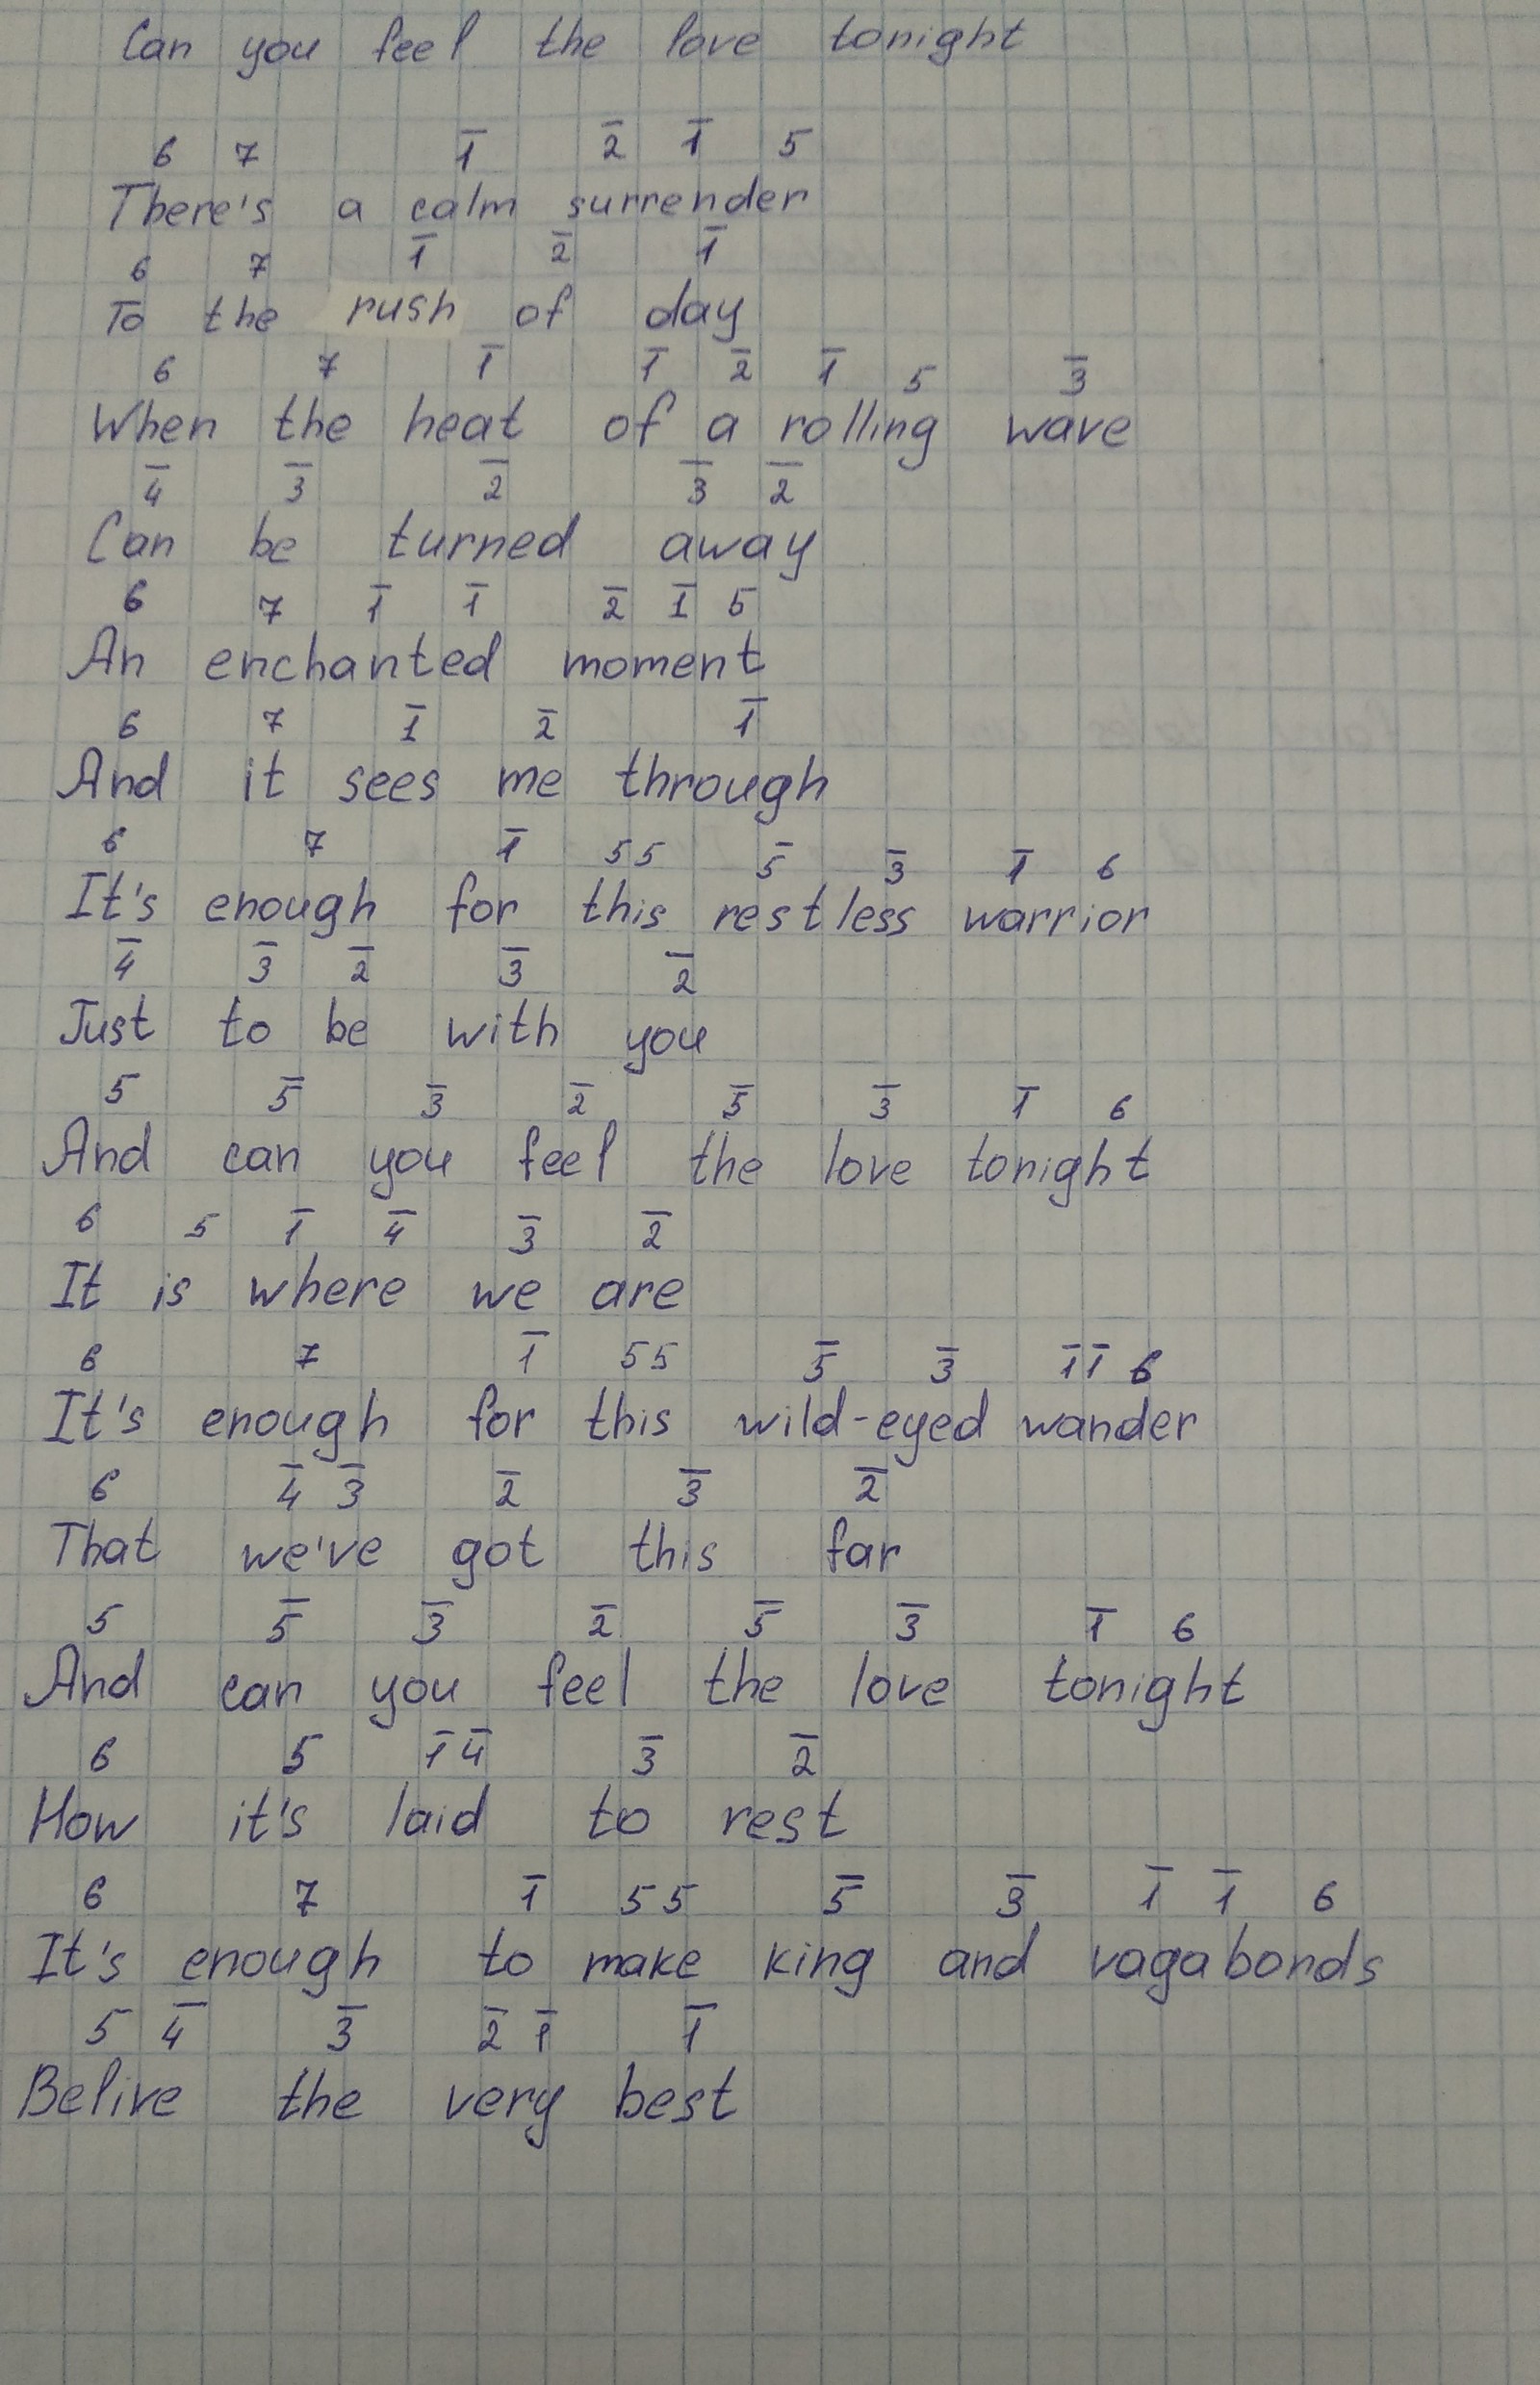 Can you feel the love tonight
6 7 1̅ 2̅ 1̅ 5
There's a calm surrender
6 7 1̅ 2̅ 1̅
To the rush of day
6 7 1̅ 1̅ 2̅ 1̅ 5 3̅
When the heat of a rolling wave
4̅ 3̅ 2̅ 3̅ 2̅
Can be turned away
6 7 1̅ 1̅ 2̅ 1̅ 5
An enchanted moment
6 7 1̅ 2̅ 1̅
And it sees me through
6 7 1̅ 5 5 5̅ 3̅ 1̅ 6
It's enough for this restless warrior
4̅ 3̅ 2̅ 3̅ 2̅
Just to be with you
5 5̅ 3̅ 2̅ 5̅ 3̅ 1̅ 6
And can you feel the love tonight
6 5 1̅ 4̅ 3̅ 2̅
It is where we are
6 7 1̅ 5 5 5̅ 3̅ 1̅ 1̅ 6
It's enough for this wild-eyed wander
6 4̅ 3̅ 2̅ 3̅ 2̅
That we've got this far
5 5̅ 3̅ 2̅ 5̅ 3̅ 1̅ 6
And can you feel the love tonight
6 5 1̅ 4̅ 3̅ 2̅
How it's laid to rest
6 7 1̅ 5 5 5̅ 3̅ 1̅ 1̅ 6
It's enough to make king and vagabonds
5 4̅ 3̅ 2̅ 1̅ 1̅
Belive the very best